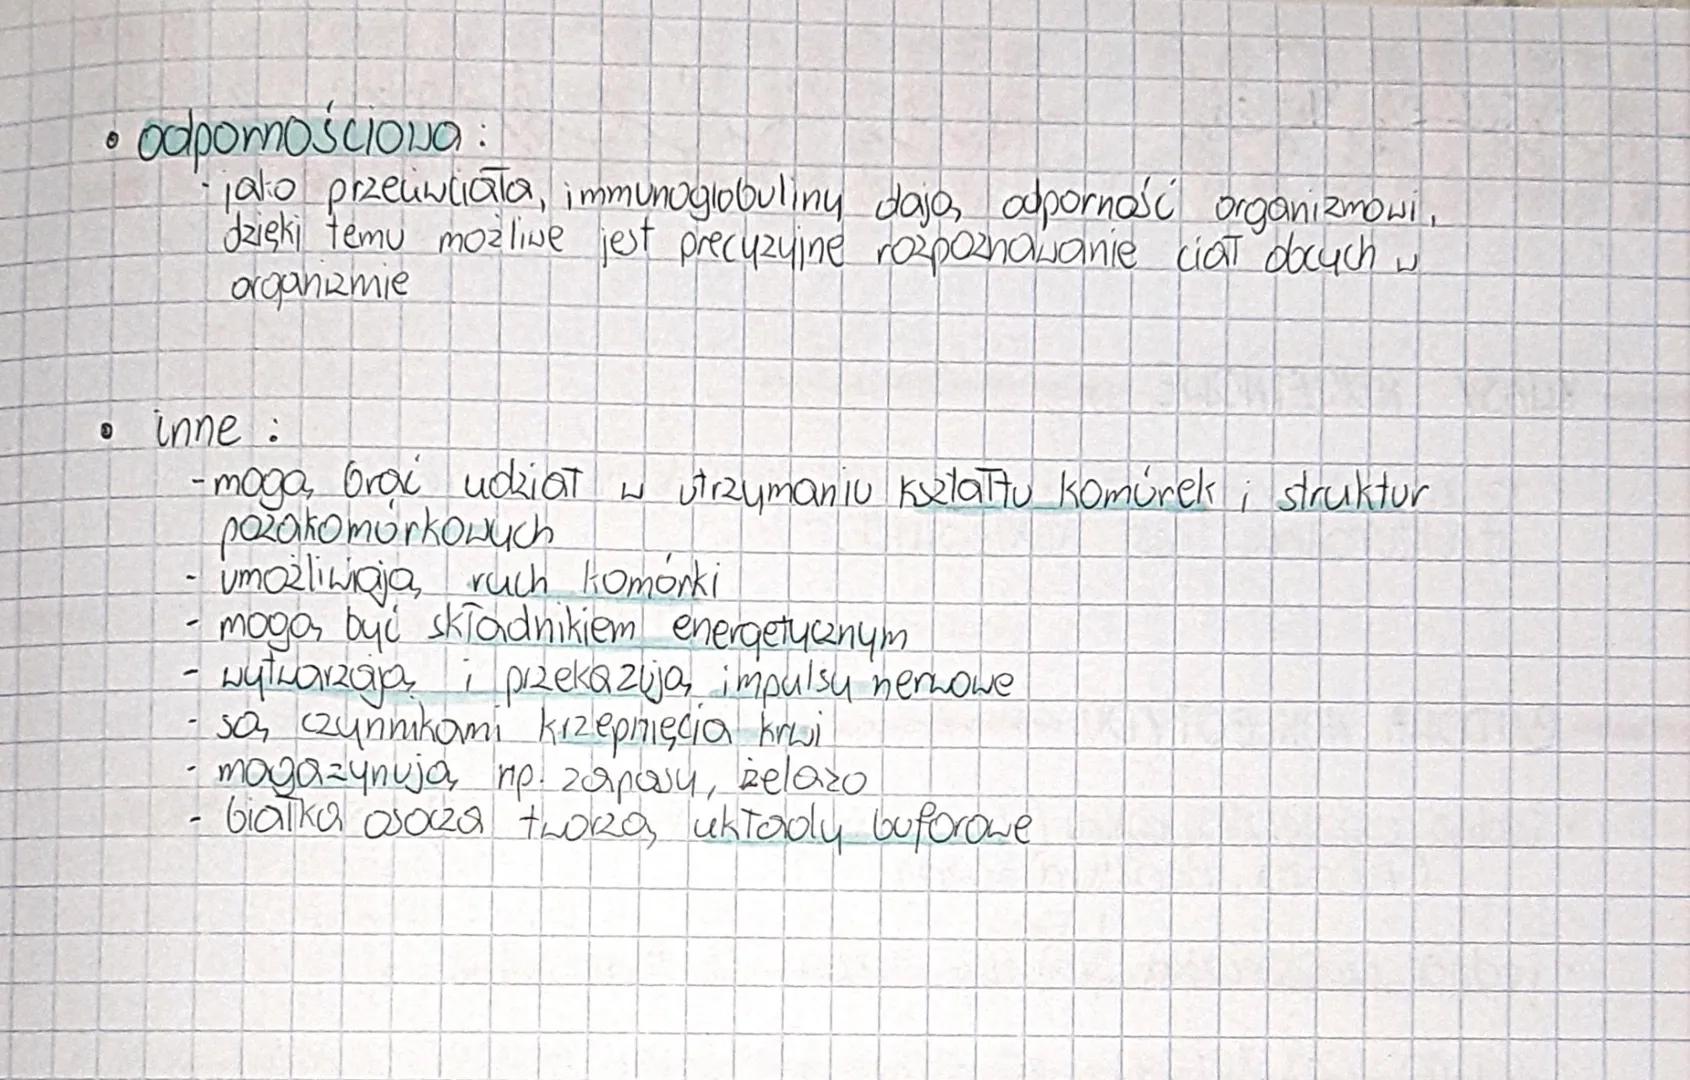 • odpornościowa:
- jako przeciwciała, immunoglobuliny dają odporność organizmowi,
dzięki temu możliwe jest precyzyjne rozpoznawanie ciał obcych w
organizmie
• inne:
- mogą brać udział w utrzymaniu kształtu komórek i struktur
pozakomórkowych
- umożliwiają ruch komórki
- mogą być składnikiem energetycznym
- wytwarzają i przekazują impulsy nerwowe
- są czynnikami krzepnięcia krwi
- magazynują np. zapasy, żelazo
- białka osocza tworzą układy buforowe